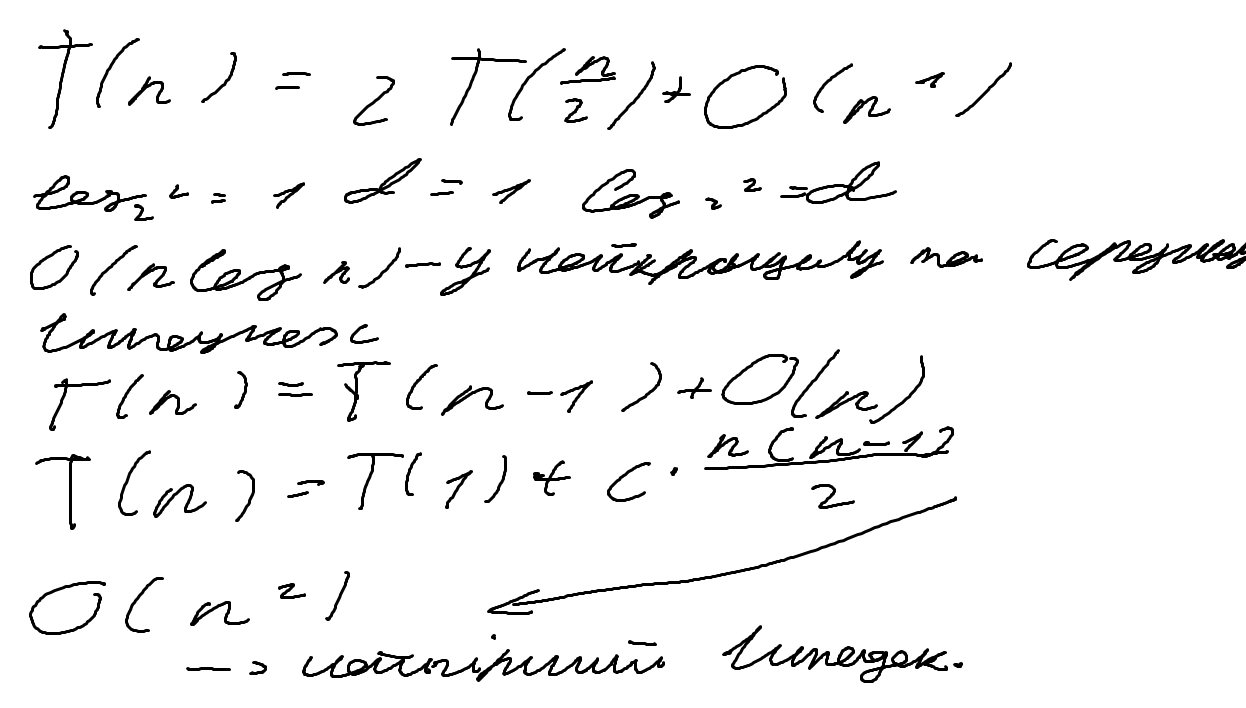 T(n) = 2 T(n/2) + O(n^1)
log_2 2 = 1 d = 1 log_2 2 = d
O(n log n) - у найкращому та середньому
випадках
T(n) = T(n-1) + O(n)
T(n) = T(1) + c · n(n-1)/2
O(n^2)
-> найгірший випадок.